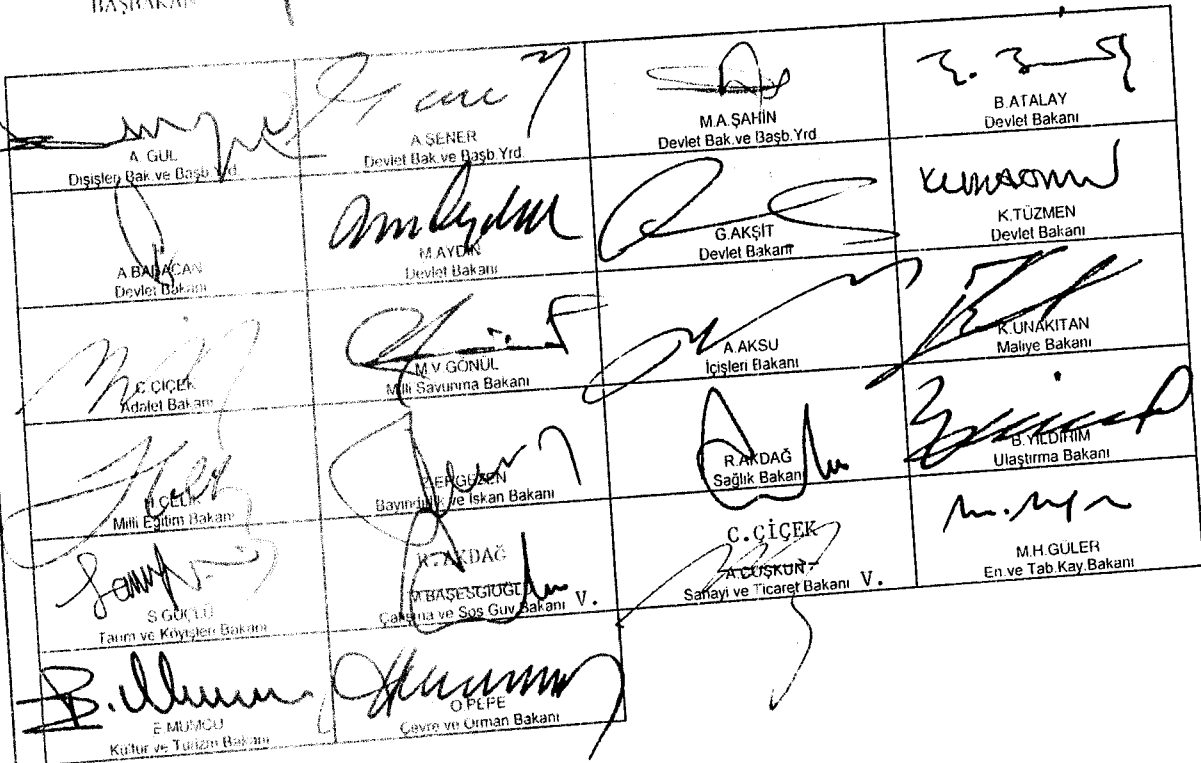 BAŞBAKAN
A. GÜL
Dışişleri Bak.ve Başb.Yrd.
A.ŞENER
Devlet Bak.ve Başb.Yrd.
M.A.ŞAHİN
Devlet Bak.ve Başb.Yrd
B.ATALAY
Devlet Bakanı
A.BABACAN
Devlet Bakanı
M.AYDIN
Devlet Bakanı
G.AKŞİT
Devlet Bakanı
K.TÜZMEN
Devlet Bakanı
C.ÇİÇEK
Adalet Bakanı
M.V.GÖNÜL
Milli Savunma Bakanı
A.AKSU
İçişleri Bakanı
K.UNAKITAN
Maliye Bakanı
H.ÇELİK
Milli Eğitim Bakanı
Z.ERGEZEN
Bayındırlık ve İskan Bakanı
R.AKDAĞ
Sağlık Bakanı
B.YILDIRIM
Ulaştırma Bakanı
S.GÜÇLÜ
Tarım ve Köyişleri Bakanı
R.AKDAĞ
M.BAŞESGİOĞLU
Çalışma ve Sos.Güv.Bakanı V.
C.ÇİÇEK
A.COŞKUN
Sanayi ve Ticaret Bakanı V.
M.H.GÜLER
En.ve Tab.Kay.Bakanı
E.MUMCU
Kültür ve Turizm Bakanı
O.PEPE
Çevre ve Orman Bakanı